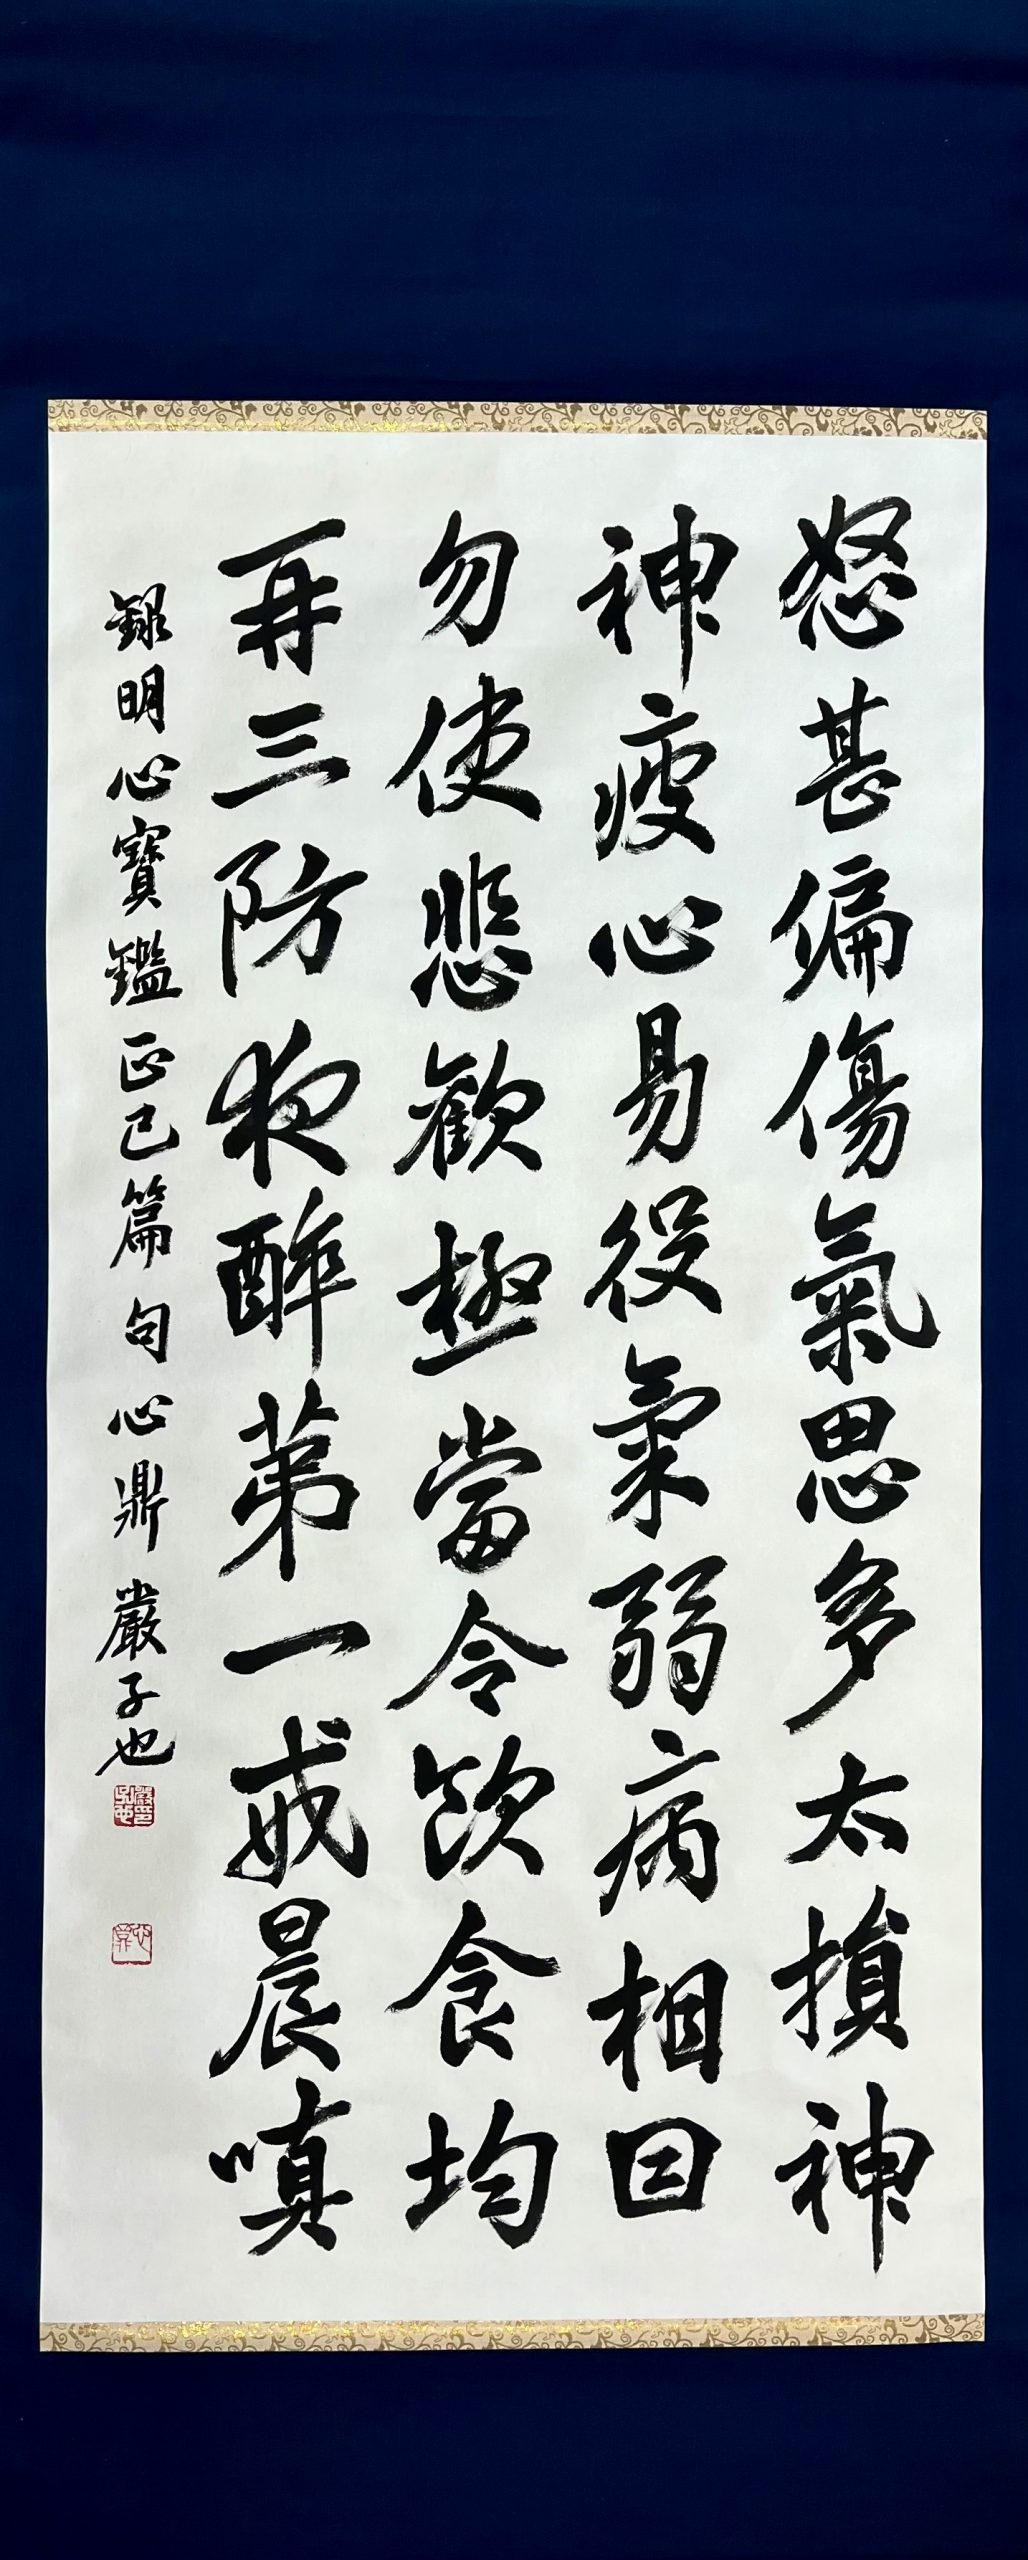 怒甚偏傷氣思多太損神
神疲心易役氣弱病相因
勿使悲歡極當令飲食均
再三防夜醉第一戒晨嗔
錄明心寶鑑正己篇句心鼎嚴子也